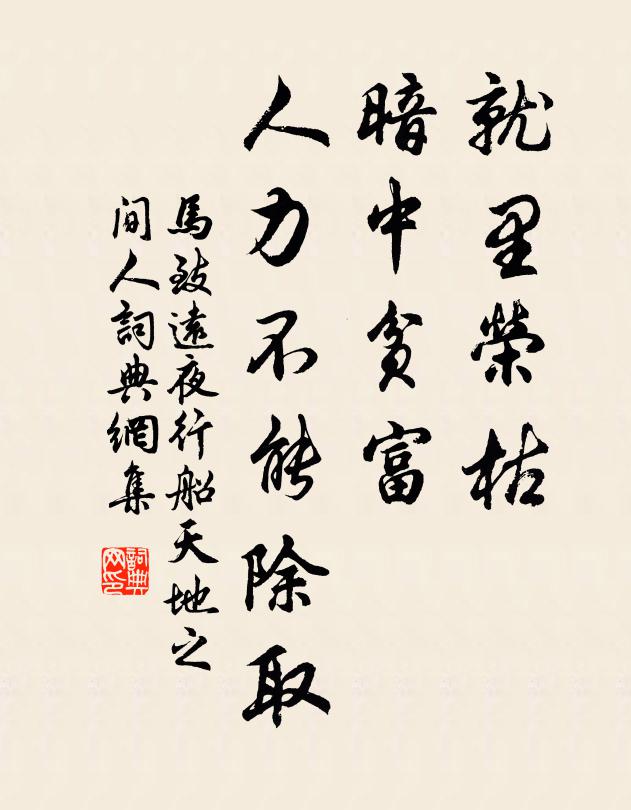 就里榮枯
暗中貧富
人力不能除取
馬致遠夜行船天地之
間人詞典網集
詞典
网印